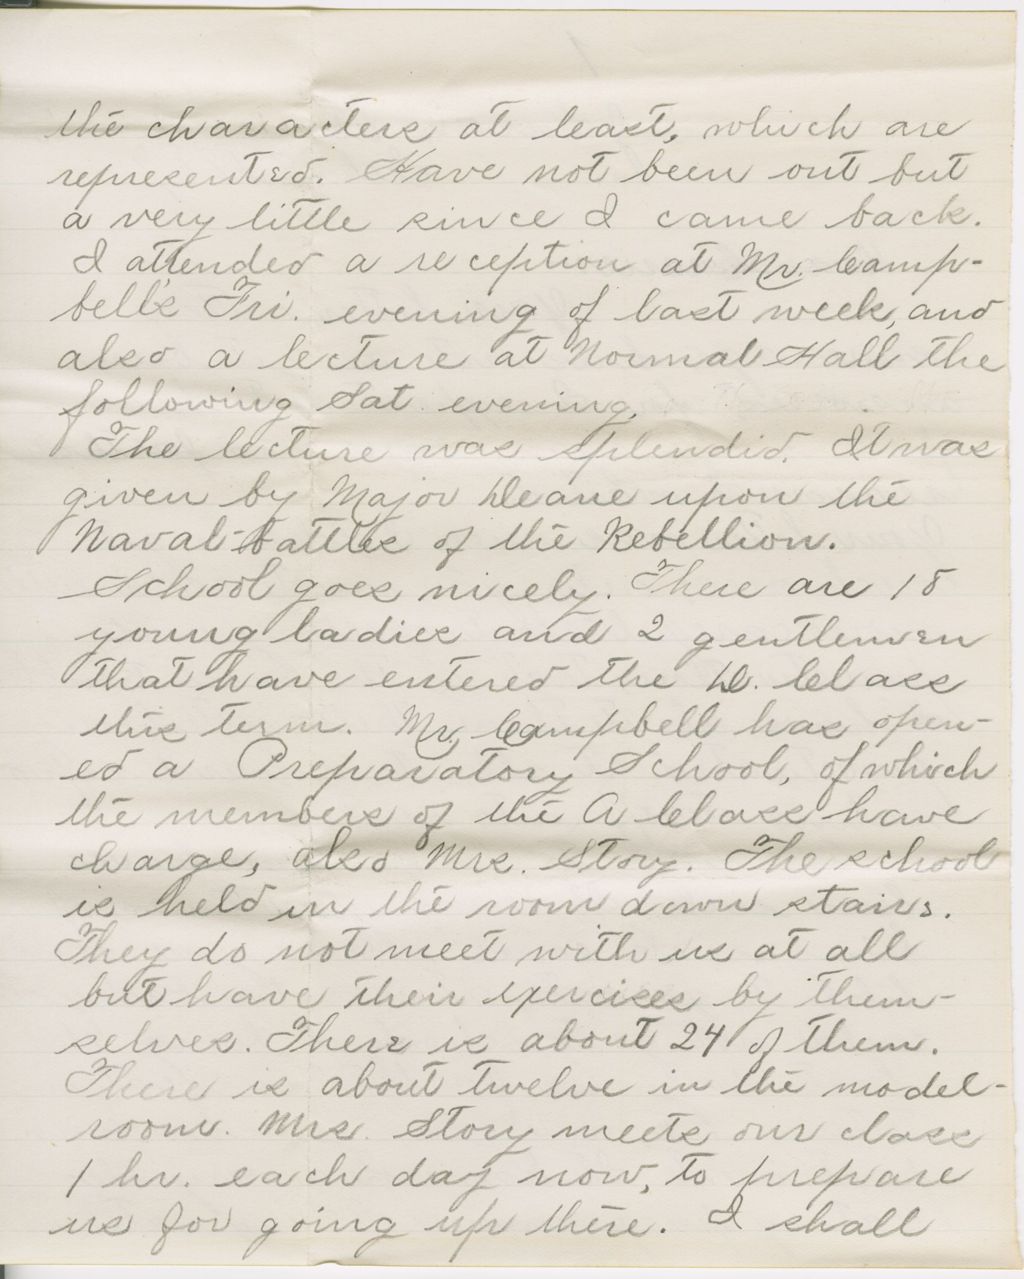 the characters at least, which are
represented. Have not been out but
a very little since I came back.
I attended a reception at Mr. Camp-
bell's Fri. evening of last week, and
also a lecture at Normal Hall the
following Sat. evening.
The lecture was splendid. It was
given by Major Deane upon the
Naval-battles of the Rebellion.
School goes nicely. There are 18
young ladies and 2 gentlemen
that have entered the D. Class
this term. Mr. Campbell has open-
ed a Preparatory School, of which
the members of the A Class have
charge, also Mrs. Story. The school
is held in the room down stairs.
They do not meet with us at all
but have their exercises by them-
selves. There is about 24 of them.
There is about twelve in the model-
room. Mrs. Story meets our class
1 hr. each day now, to prepare
us for going up there. I shall